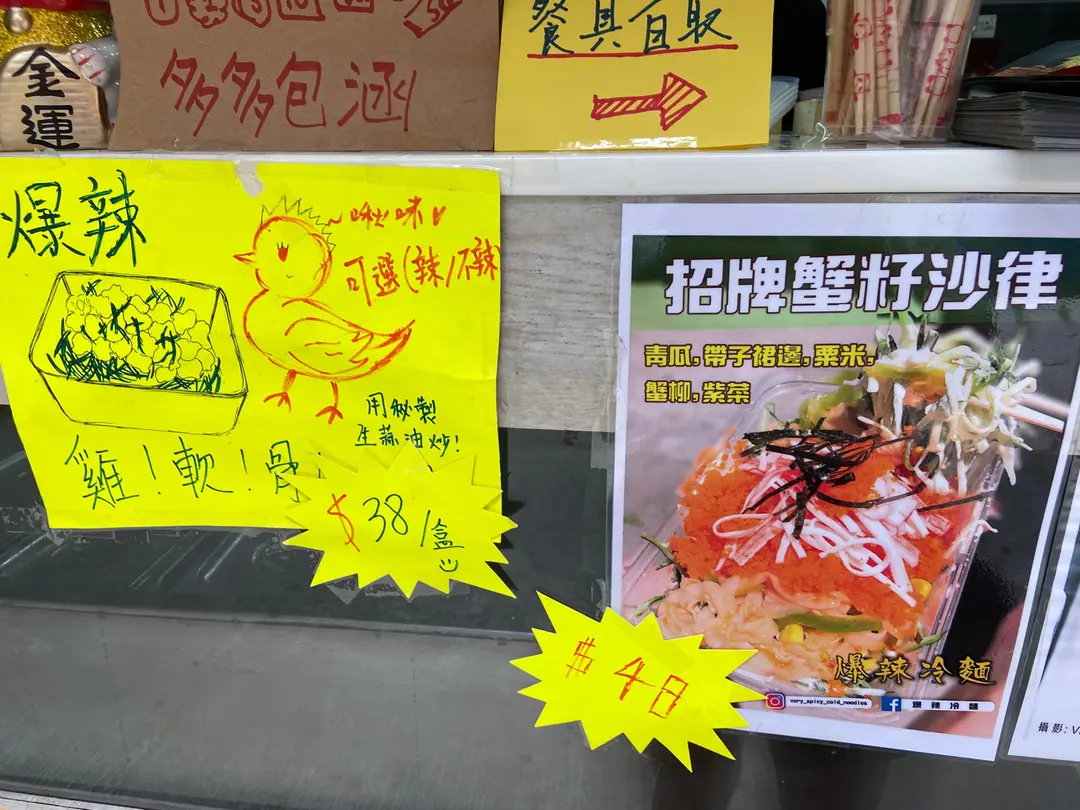 金
運
多多包涵
餐具自取
爆辣
~啾味
可選(辣/不辣
用秘製
生蒜油炒!
雞!軟!骨
$38/盒
招牌蟹籽沙律
青瓜,帶子裙邊,粟米,
蟹柳,紫菜
爆辣冷麵
very_spicy_cold_noodles
爆辣冷麵
$48
攝影:V